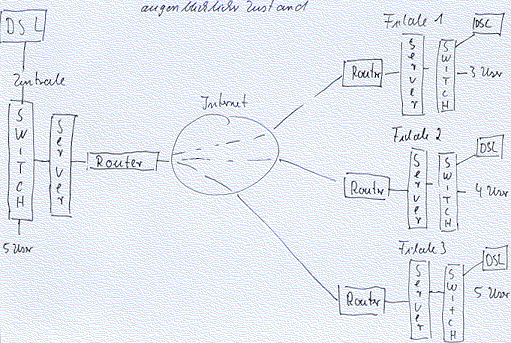 augenblicklicher Zustand
DSL
Zentrale
SWITCH
Server
Router
5 User
Internet
Filiale 1
Router
Server
SWITCH
DSL
3 User
Filiale 2
Router
Server
SWITCH
DSL
4 User
Filiale 3
Router
Server
Switch
DSL
5 User